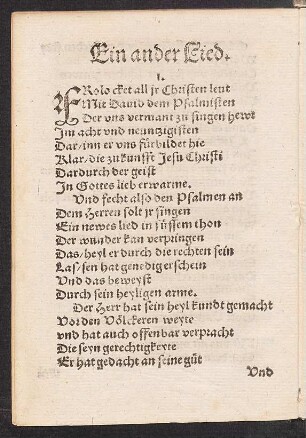 Ein ander Lied.
1.
FRolo cket all jr Christen leut
Mit Dauid dem Psalmisten
Der vns vermant zu singen hewt
Im acht vnd neuntzigisten
Dar/inn er vns fürbildet hie
Klar/die zukunfft Jesu Christi
Dardurch der geist
In Gottes lieb erwarme.
Vnd fecht also den Psalmen an
Dem Herren solt jr singen
Ein newes lied in süssem thon
Der wunder kan verpringen
Das/heyl er durch die rechten sein
Las/sen hat genedig erschein
Vnd das beweyst
Durch sein heyligen arme.
Der Herr hat sein heyl kundt gemacht
Vor den Völckeren weyte
vnd hat auch offenbar verpracht
Die seyn gerechtigkeyte
Er hat gedacht an seine güt
Vnd